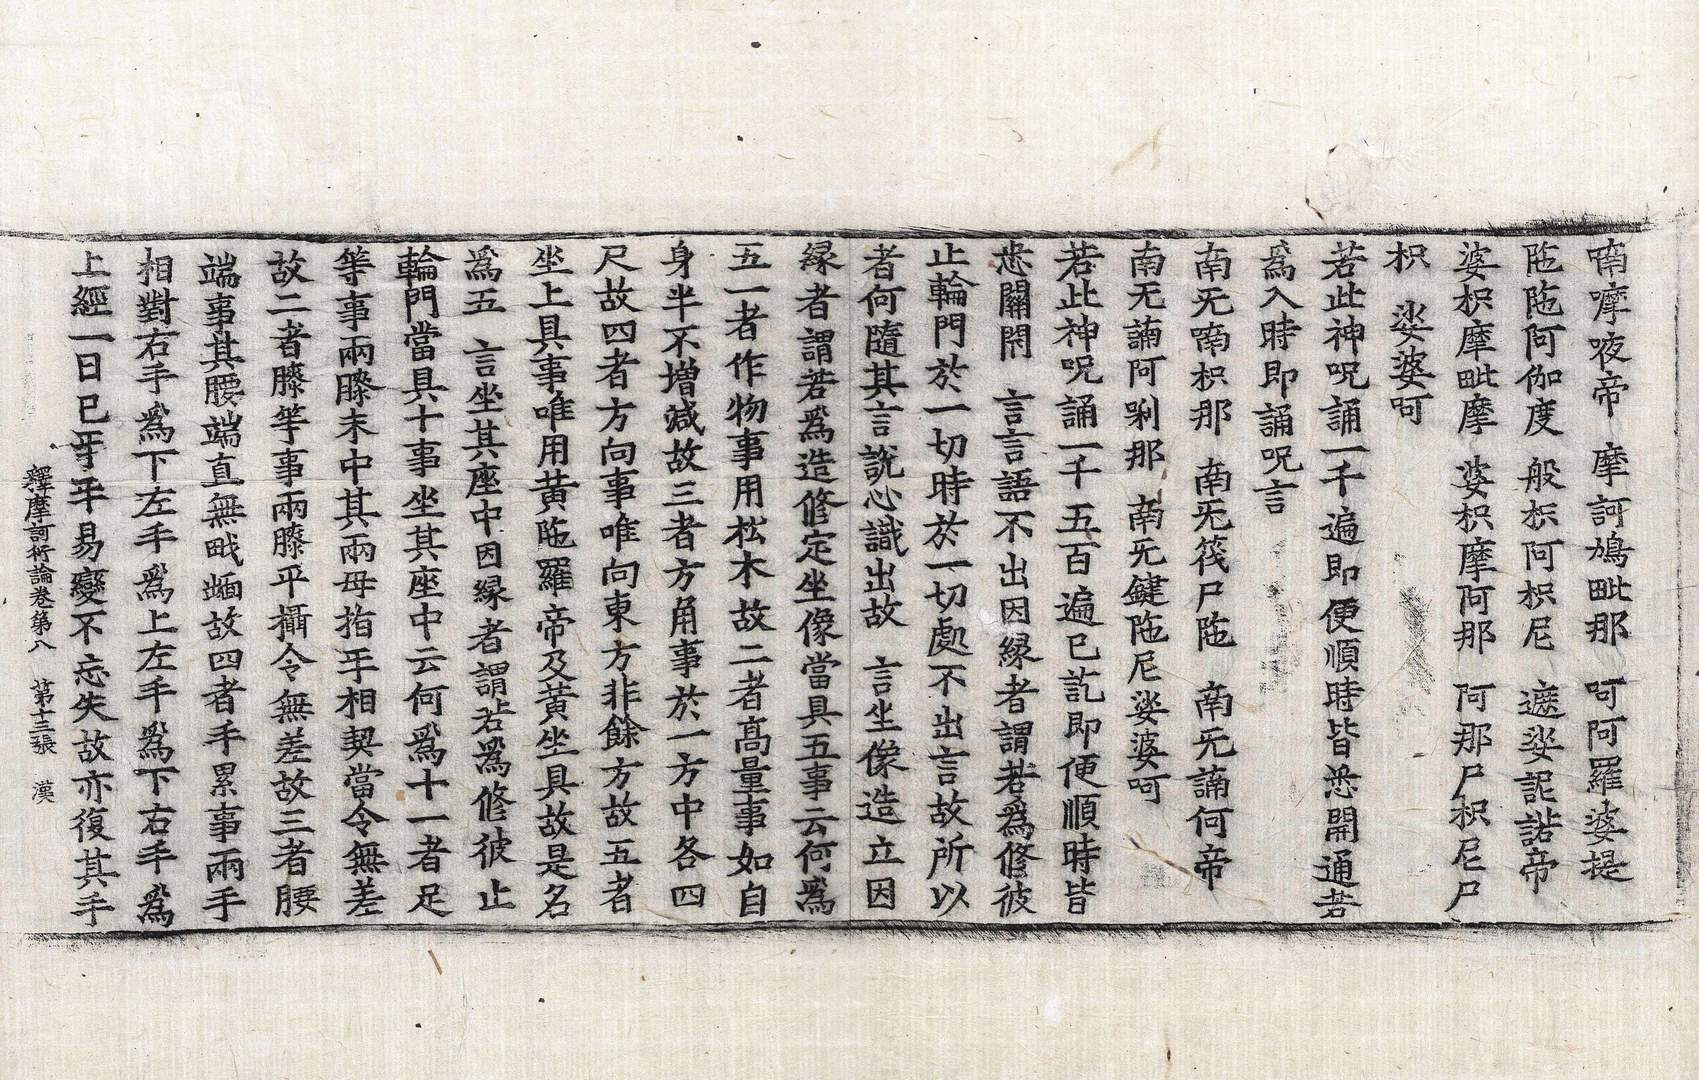 喃嚤呅帝 摩訶鳩毗那 呵阿羅婆提
陁陁阿伽度 般枳阿枳尼 遮娑詑諾帝
婆枳摩毗摩 婆枳摩阿那 阿那尸枳尼尸
枳 娑婆呵
若此神呪誦一千遍即便順時皆悉開通若
爲入時即誦呪言
南旡喃枳那 南旡筏尸陁 南旡諵何帝
南无諵阿剁那 南旡鍵陁尼娑婆呵
若此神呪誦一千五百遍已訖即便順時皆
悉關閇 言言語不出因縁者謂若爲修彼
止輪門於一切時於一切處不出言故所以
者何隨其言說心識出故 言坐像造立因
縁者謂若爲造修定坐像當具五事云何爲
五一者作物事用松木故二者髙量事如自
身半不增減故三者方角事於一方中各四
尺故四者方向事唯向東方非餘方故五者
坐上具事唯用黄陁羅帝及黄坐具故是名
爲五 言坐其座中因縁者謂若爲修彼止
輪門當具十事坐其座中云何爲十一者足
等事兩膝末中其兩母指平相契當令無差
故二者膝等事兩膝平攝令無差故三者腰
端事其腰端直無𢧵緬故四者手累事兩手
相對右手爲下左手爲上左手爲下右手爲
上經一日已牙平易變不忘失故亦復其手
釋摩訶衍論卷第八 第十三張 漢